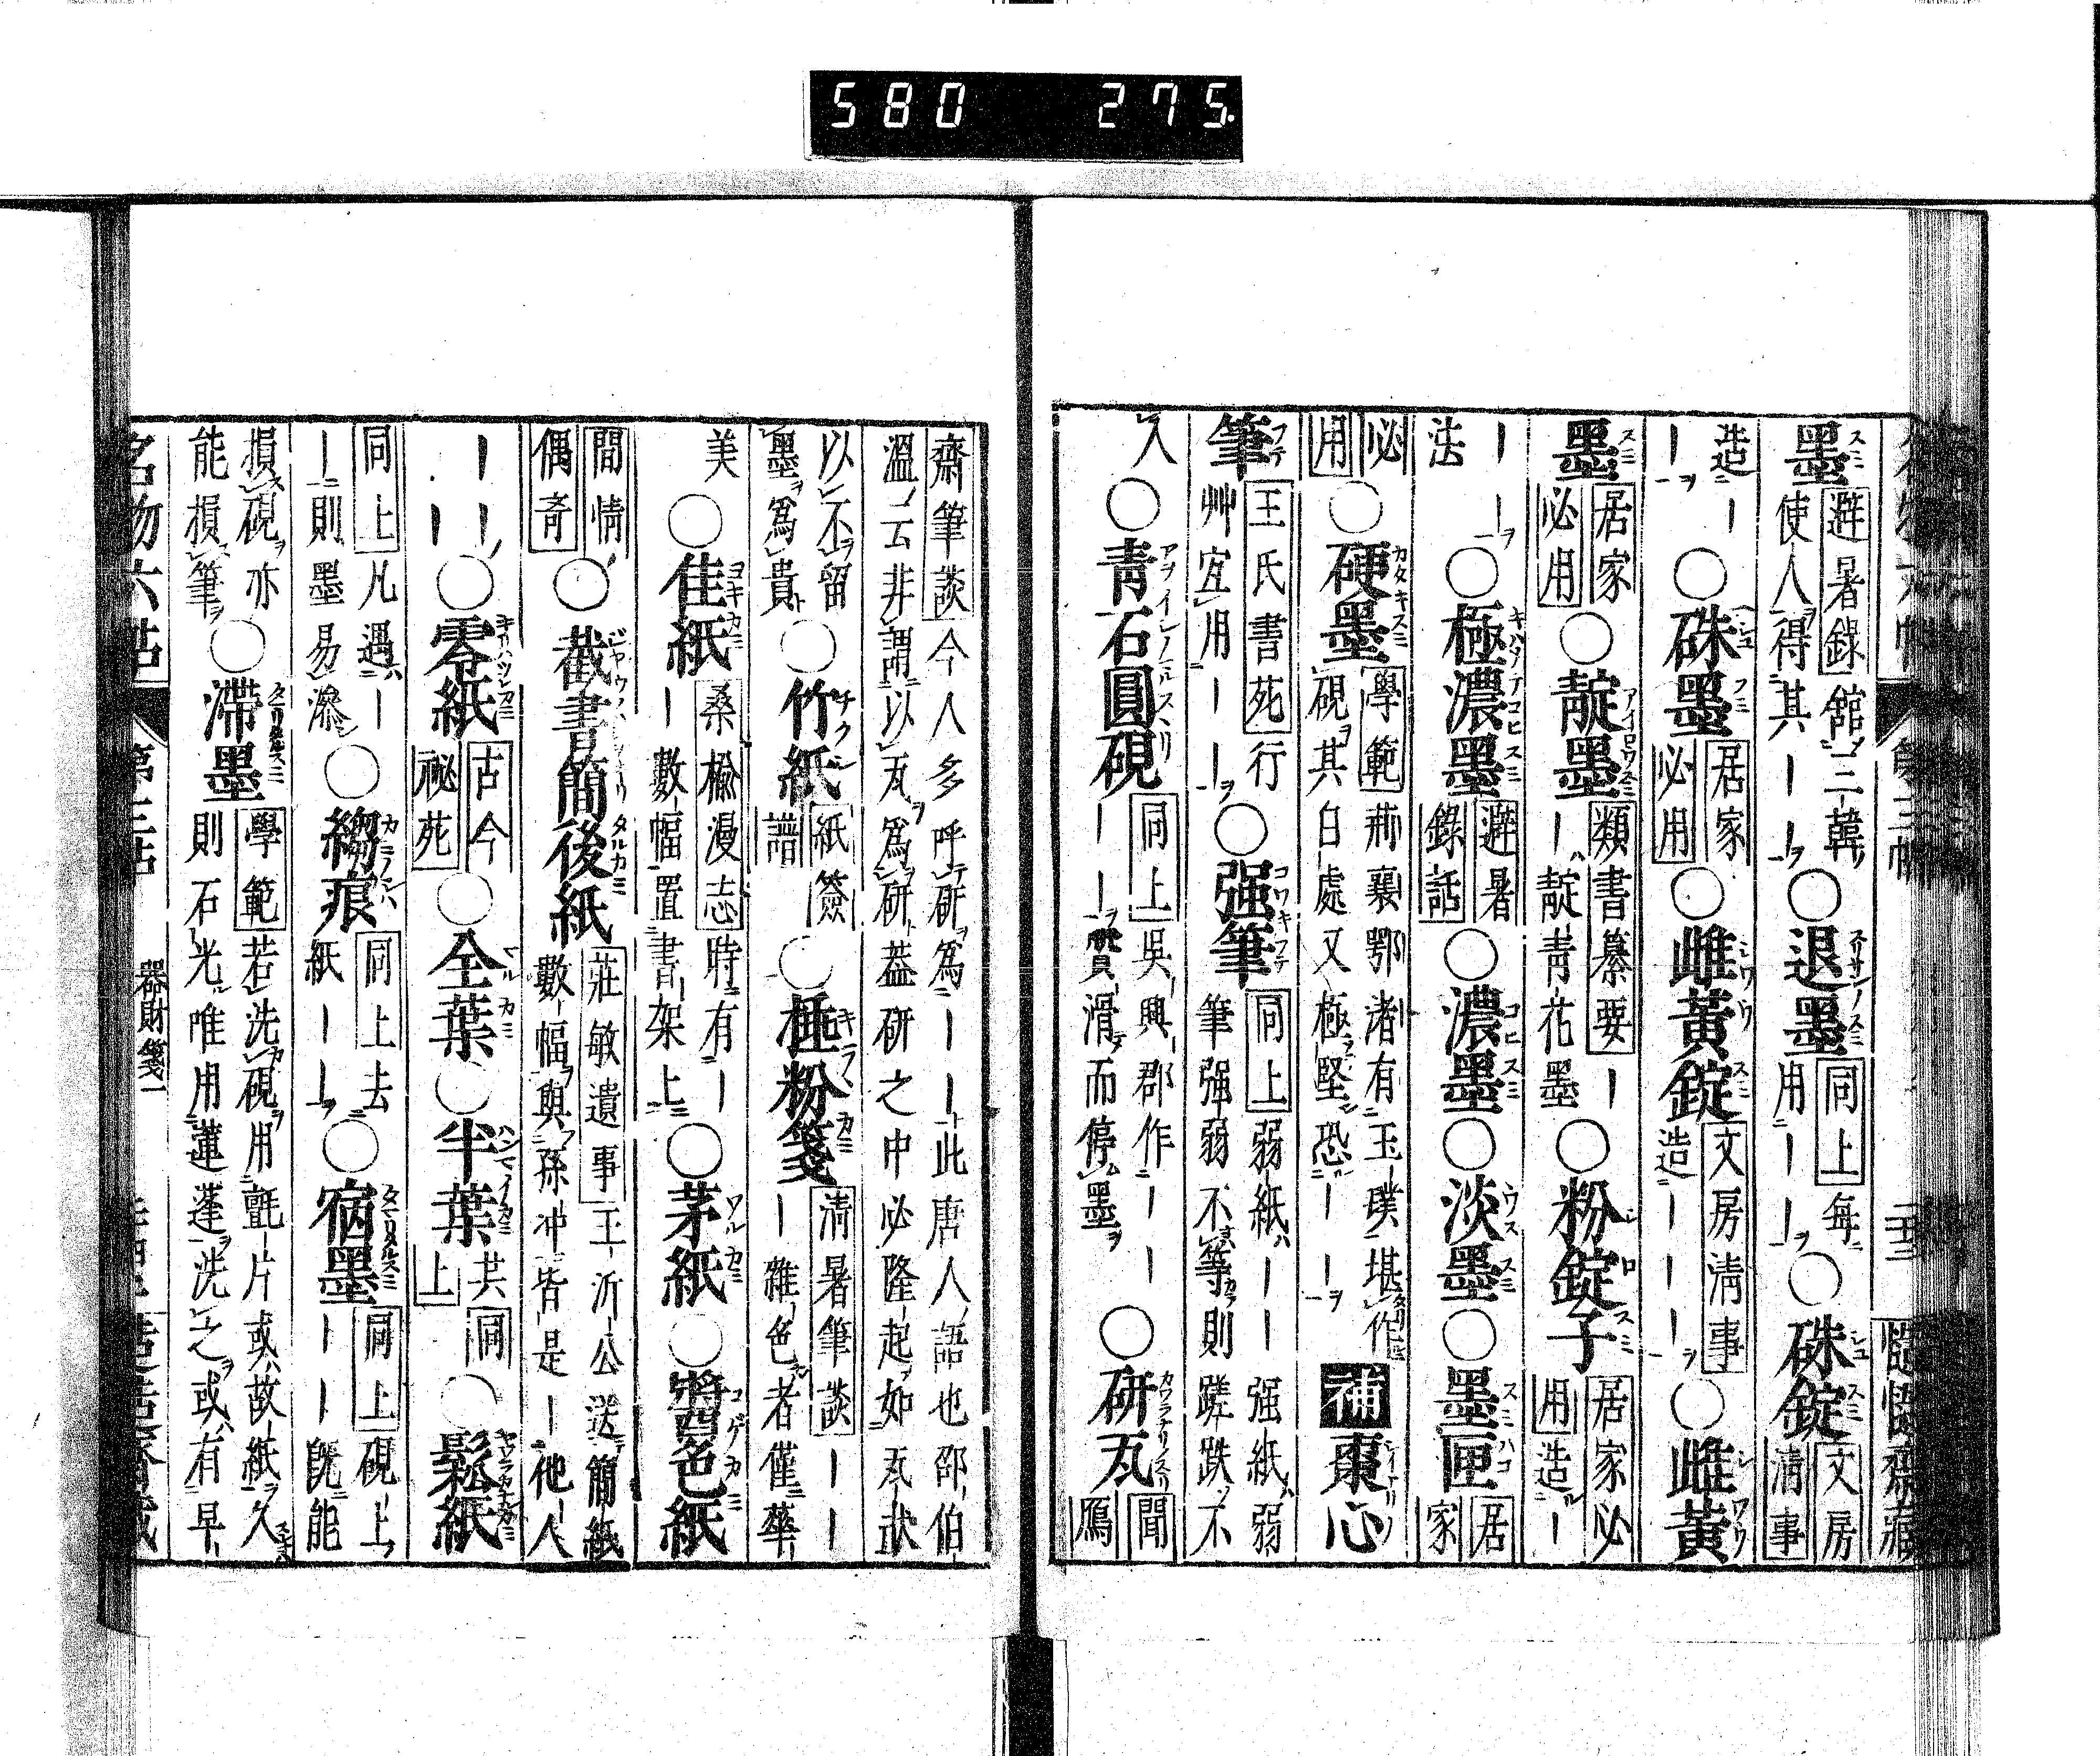 580 275.
墨 避暑錄 館三韓使人得其－－ ○退墨 同上 每用－－ ○硃錠 文房清事
造－－ ○硃墨 居家必用 ○雌黃錠 文房清事 造－－－ ○雌黃
墨 居家必用 ○靛墨 類書纂要 －－靛青花墨 ○粉錠子 居家必用 造－
－－法 ○極濃墨 避暑錄話 ○濃墨 ○淡墨 ○墨匣 居家
必用 ○硬墨 學範 荊襄鄂渚有玉璞堪作硯其白處又極堅恐－－ 補 棗心
筆 王氏書苑 行艸宐用－－ ○强筆 同上 弱紙－－强紙弱筆强弱不等則蹉跌不
入 ○靑石圓硯 同上 吳興郡作－－－－質滑而停墨 ○研瓦 聞鴈
齋筆談 今人多呼研爲－－此唐人語也邵伯
溫云非謂以瓦爲研葢研之中必隆起如瓦狀
以不留墨爲貴 ○竹紙 紙箋譜 ○極粉箋 清暑筆談 －－－雜色者僅華
美 ○佳紙 桑楡漫志 時有－－數幅置書架上 ○茅紙 ○醬色紙
間情偶奇 ○截書簡後紙 莊敏遺事 王沂公送簡紙數幅與孫冲皆是－他人
－－－－ ○零紙 古今祕苑 ○全葉 ○半葉 共同上 ○鬆紙
同上 凡遇－－則墨易滲 ○縐痕 同上 去紙－－ ○宿墨 同上 硯上－－旣能
損硯亦能損筆 ○滯墨 學範 若洗硯用氈片或故紙久則石光唯用蓮蓬洗之或有早
名物六帖 第三帖 器財箋一